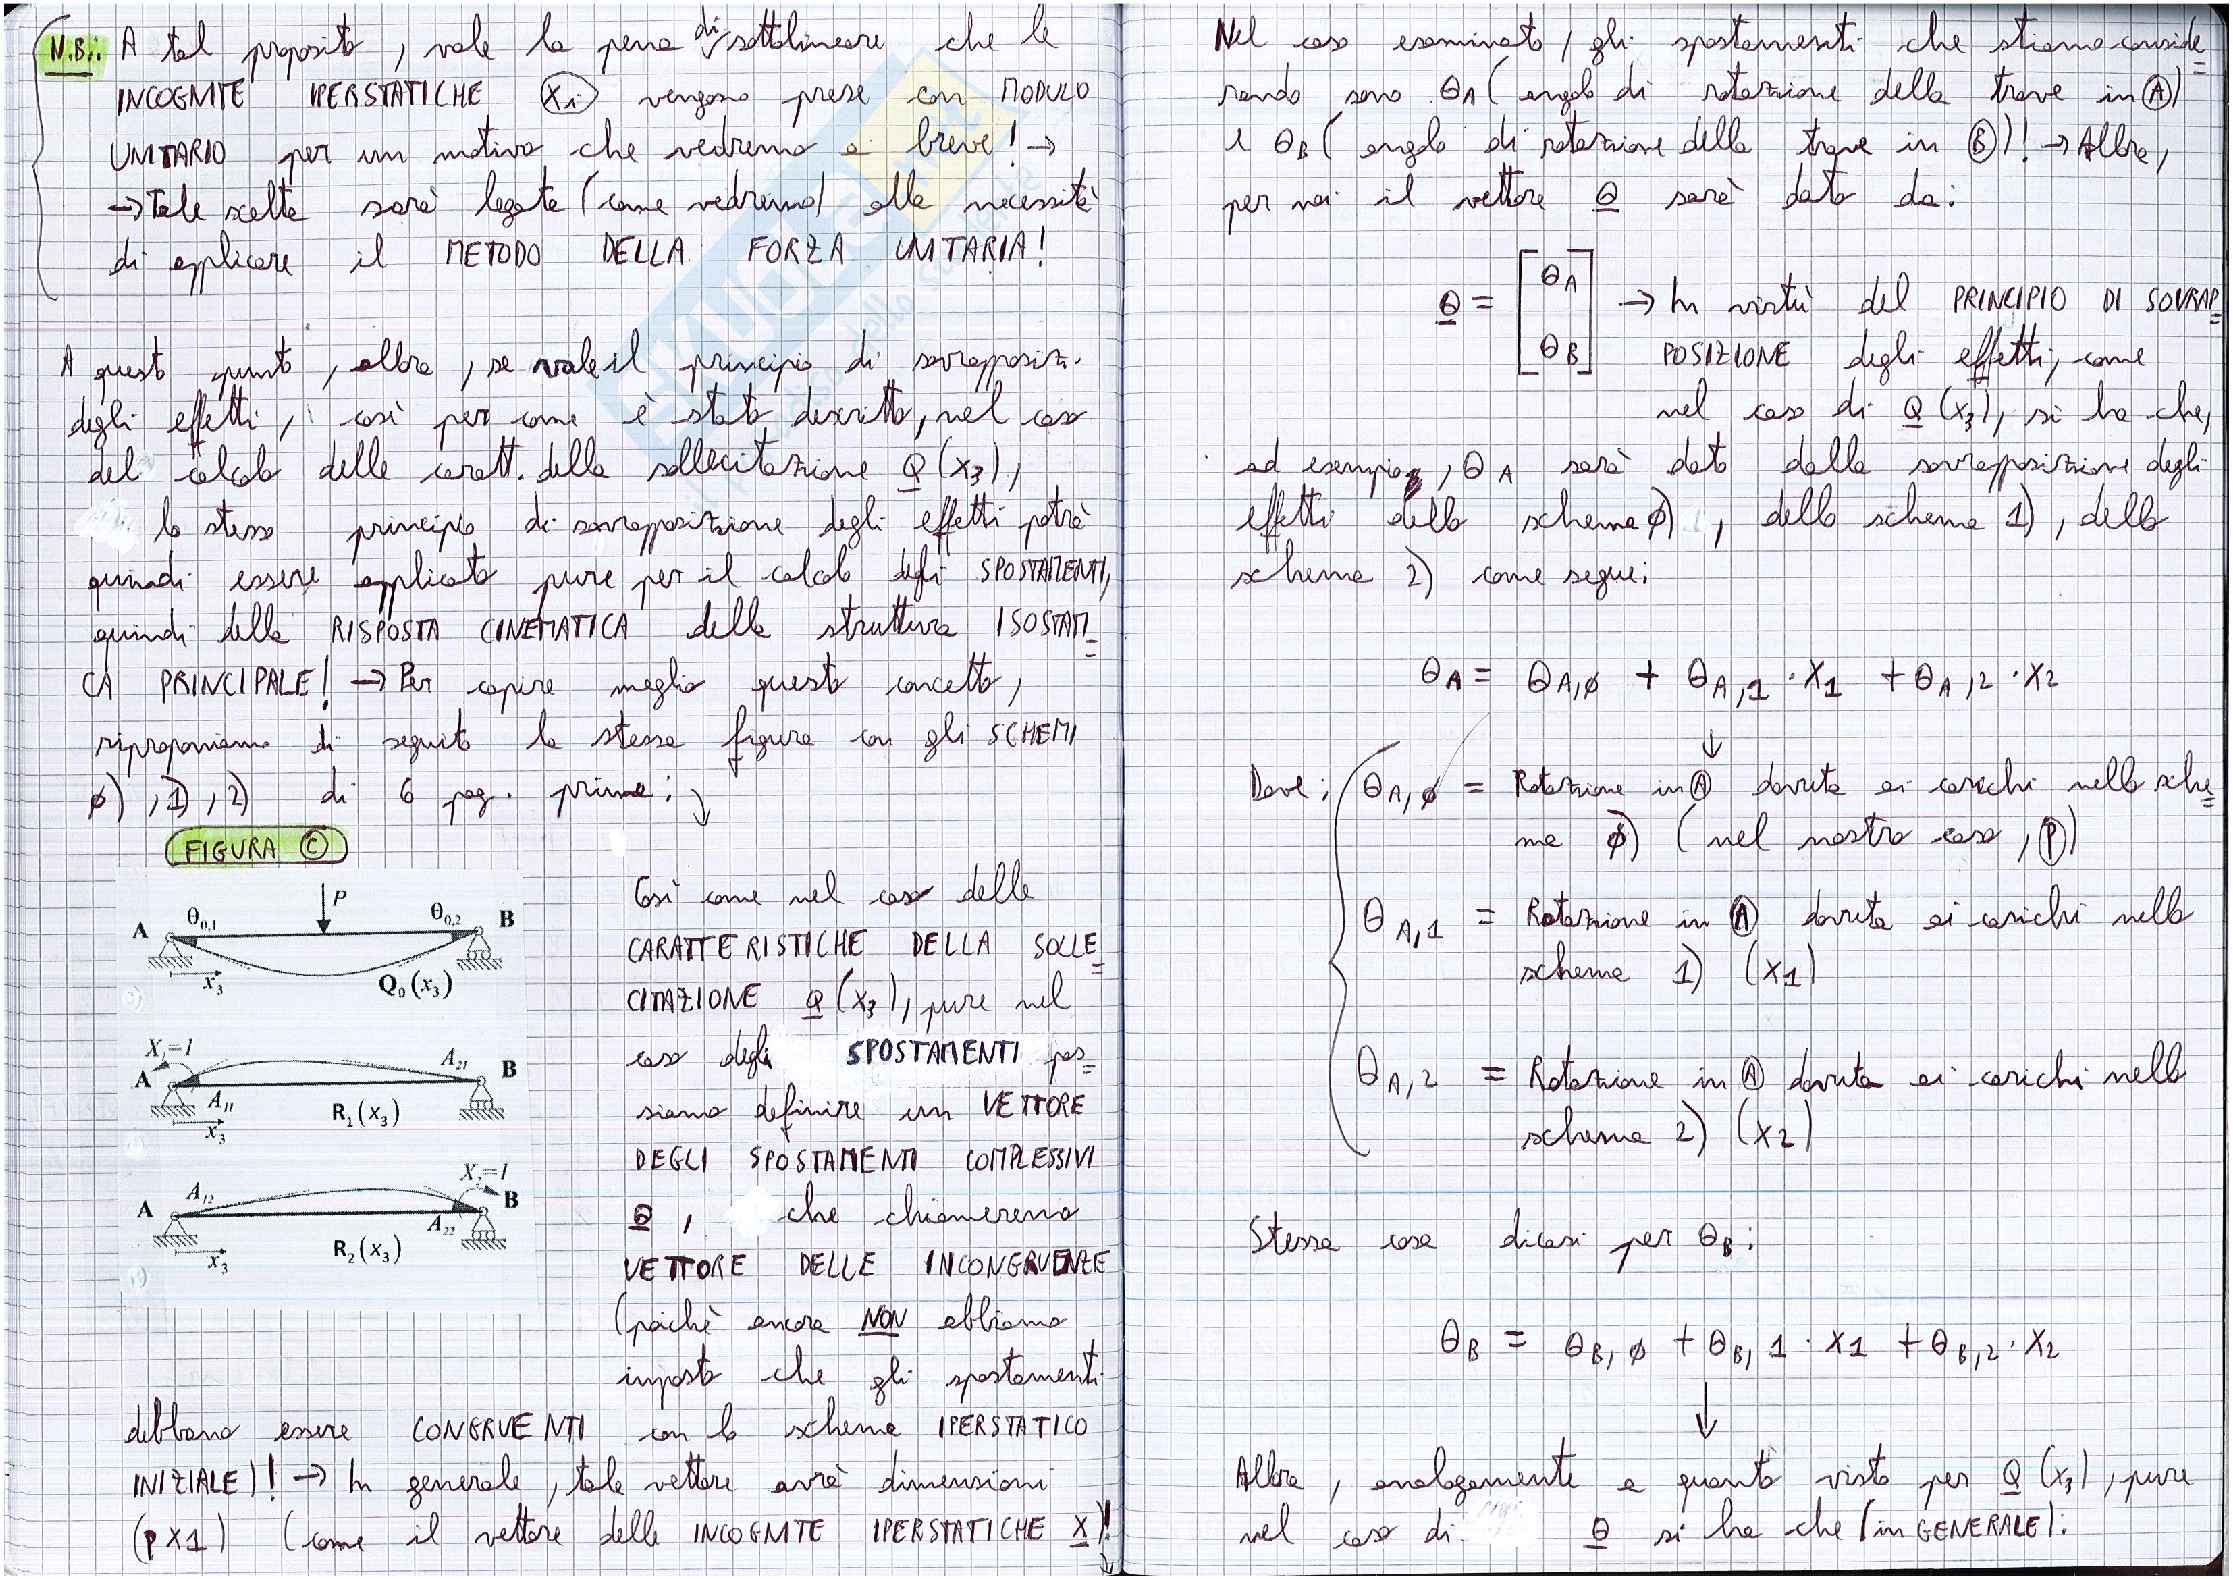 N.B.: A tal proposito, vale la pena di sottolineare che le
INCOGNITE IPERSTATICHE Xi vengono prese con MODULO
UNITARIO per un motivo che vedremo a breve! →
→ Tale scelta sarà legata (come vedremo) alla necessità
di applicare il METODO DELLA FORZA UNITARIA!
A questo punto, allora, se vale il principio di sovrapposiz.
degli effetti, così per come è stato descritto, nel caso
del calcolo delle caratt. della sollecitazione Q(x3),
lo stesso principio di sovrapposizione degli effetti potrà
quindi essere applicato pure per il calcolo degli SPOSTAMENTI,
quindi della RISPOSTA CINEMATICA della struttura ISOSTATI=
CA PRINCIPALE! → Per capire meglio questo concetto,
riproponiamo di seguito la stessa figura con gli SCHEMI
ø), 1), 2) di 6 pag. prima: ↓
FIGURA C
P
A θ0,1 θ0,2 B
x3 Q0(x3)
X1=1
A A21 B
A11 R1(x3)
x3
X2=1
A A12 B
A22
x3 R2(x3)
Così come nel caso delle
CARATTERISTICHE DELLA SOLLE=
CITAZIONE Q(x3), pure nel
caso degli SPOSTAMENTI pos=
siamo definire un VETTORE
DEGLI SPOSTAMENTI COMPLESSIVI
θ, che chiameremo
VETTORE DELLE INCONGRUENZE
(poichè ancora NON abbiamo
imposto che gli spostamenti
debbano essere CONGRUENTI con lo schema IPERSTATICO
INIZIALE)! → In generale, tale vettore avrà dimensioni
(p x 1) (come il vettore delle INCOGNITE IPERSTATICHE X)! ↓
Nel caso esaminato, gli spostamenti che stiamo conside=
rando sono θA (angolo di rotazione della trave in A)
e θB (angolo di rotazione della trave in B)! → Allora,
per noi il vettore θ sarà dato da:
θ = [θA θB] → In virtù del PRINCIPIO DI SOVRAP=
POSIZIONE degli effetti, come
nel caso di Q(x3), si ha che,
ad esempio, θA sarà dato dalla sovrapposizione degli
effetti dello schema ø), dello schema 1), dello
schema 2) come segue:
θA = θA,ø + θA,1 · X1 + θA,2 · X2
↓
Dove: θA,ø = Rotazione in A dovuta ai carichi nello sche=
ma ø) (nel nostro caso, P)
θA,1 = Rotazione in A dovuta ai carichi nello
schema 1) (X1)
θA,2 = Rotazione in A dovuta ai carichi nello
schema 2) (X2)
Stessa cosa dicasi per θB:
θB = θB,ø + θB,1 · X1 + θB,2 · X2
↓
Allora, analogamente a quanto visto per Q(x3), pure
nel caso di θ si ha che (in GENERALE):